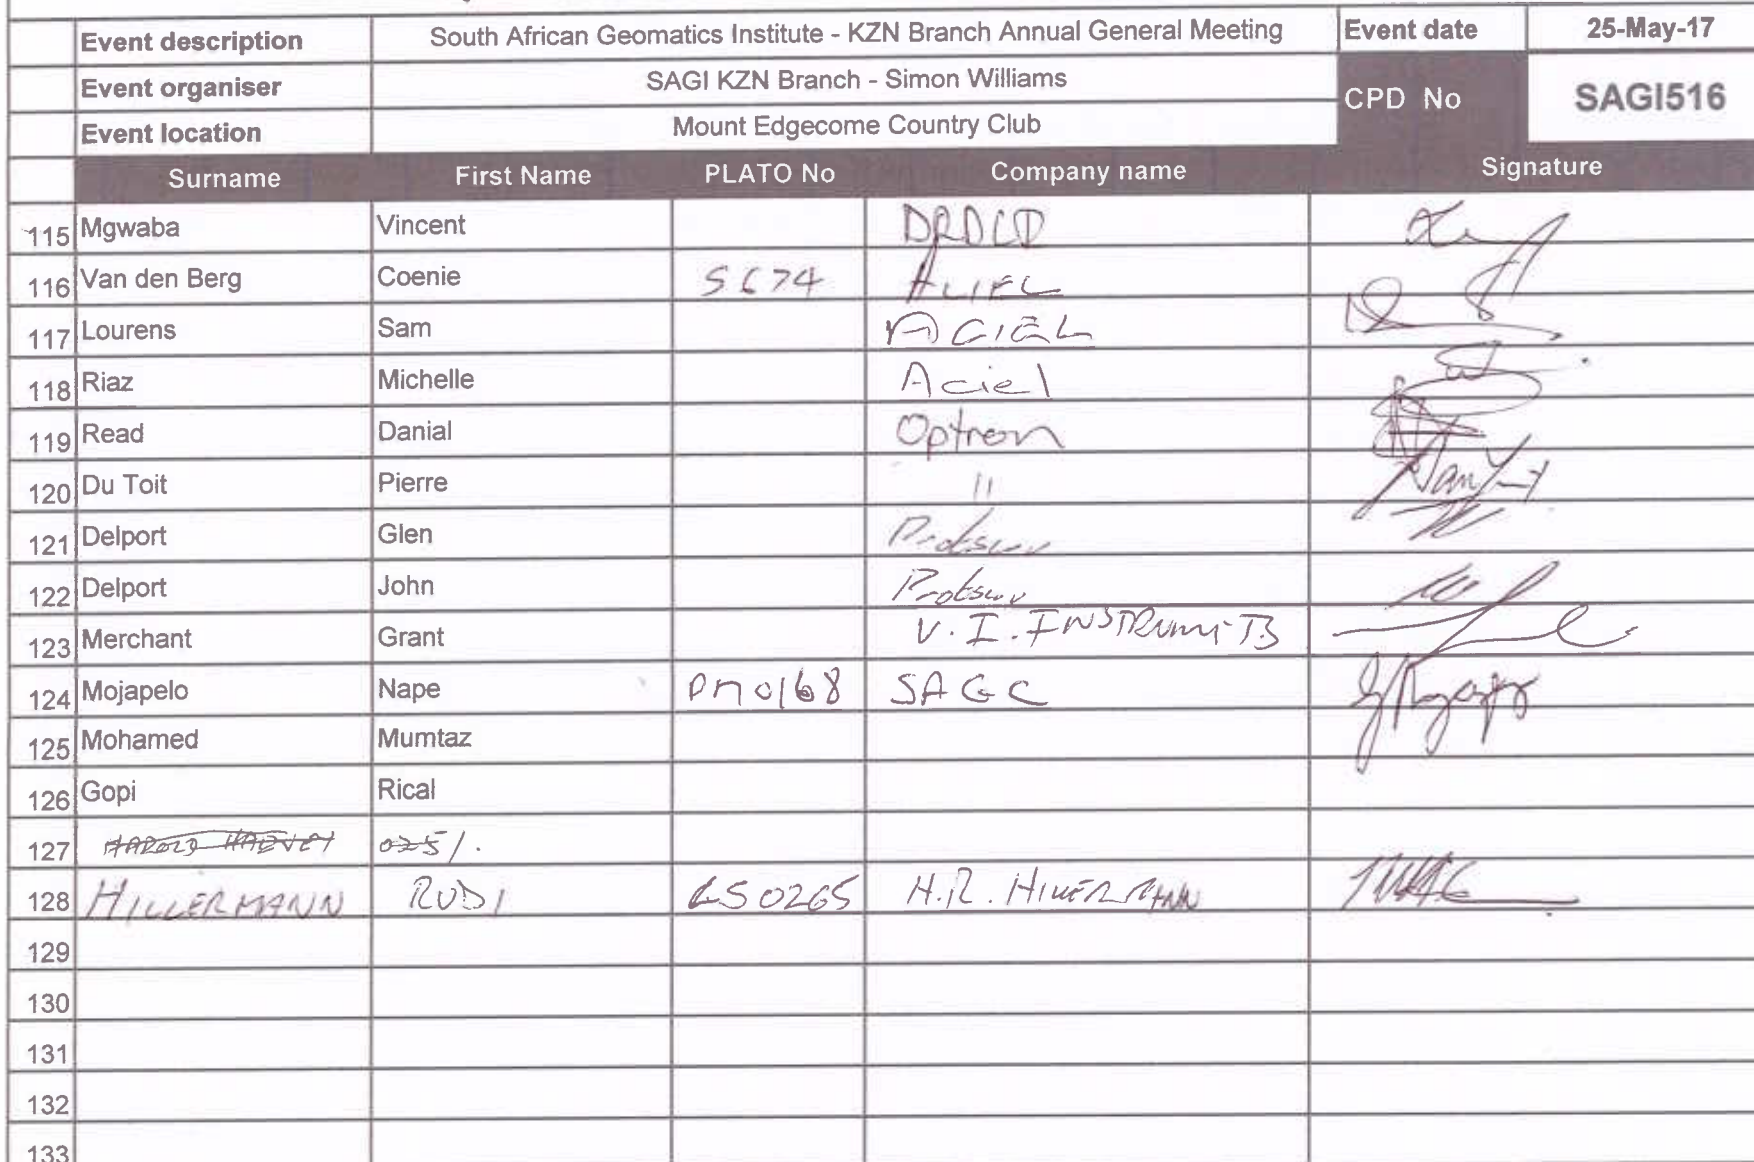 Event description South African Geomatics Institute - KZN Branch Annual General Meeting Event date 25-May-17
Event organiser SAGI KZN Branch - Simon Williams CPD No SAGI516
Event location Mount Edgecome Country Club
Surname First Name PLATO No Company name Signature
115 Mgwaba Vincent
116 Van den Berg Coenie
117 Lourens Sam ACIEL
118 Riaz Michelle Aciel
119 Read Danial Optron
120 Du Toit Pierre 11
121 Delport Glen
122 Delport John
123 Merchant Grant V. I.
124 Mojapelo Nape SAGC
125 Mohamed Mumtaz
126 Gopi Rical
127 0251.
128 HILLERMANN RUDI LS0265 H.R. HILLERMANN
129
130
131
132
133